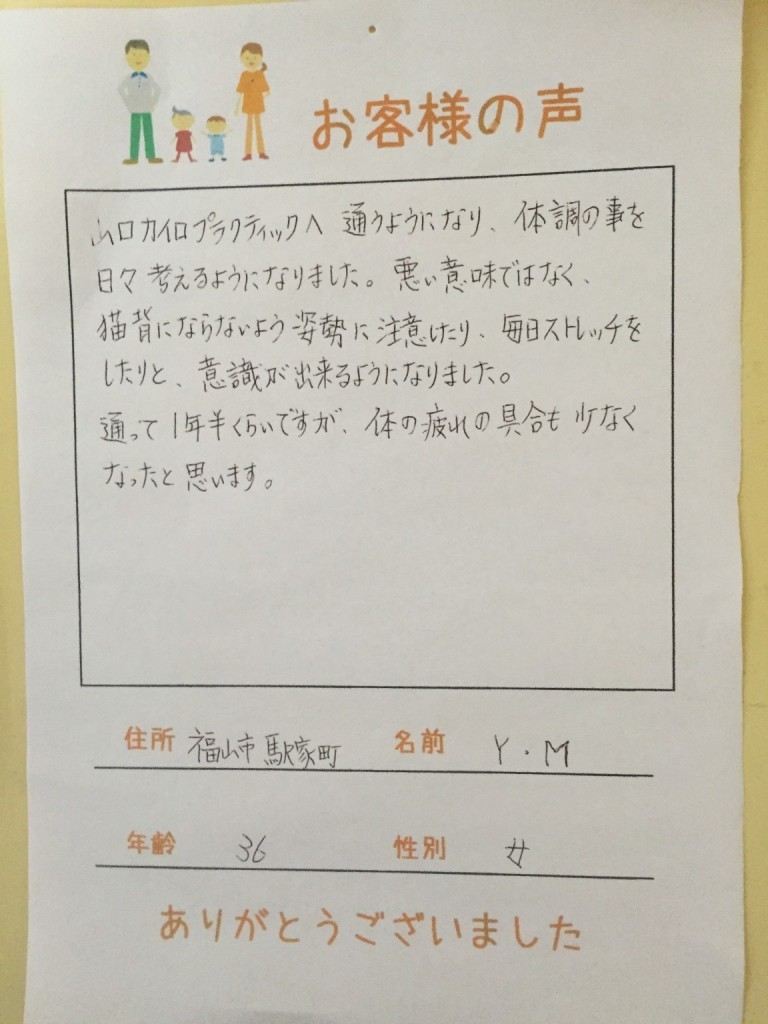 お客様の声
山口カイロプラクティックへ 通うようになり、体調の事を
日々 考えるようになりました。悪い意味ではなく、
猫背にならないよう 姿勢に 注意したり、毎日ストレッチを
したりと、意識が出来るようになりました。
通って 1年半くらいですが、体の疲れの具合も 少なく
なったと 思います。
住所 福山市 駅家町 名前 Y・M
年齢 36 性別 女
ありがとうございました